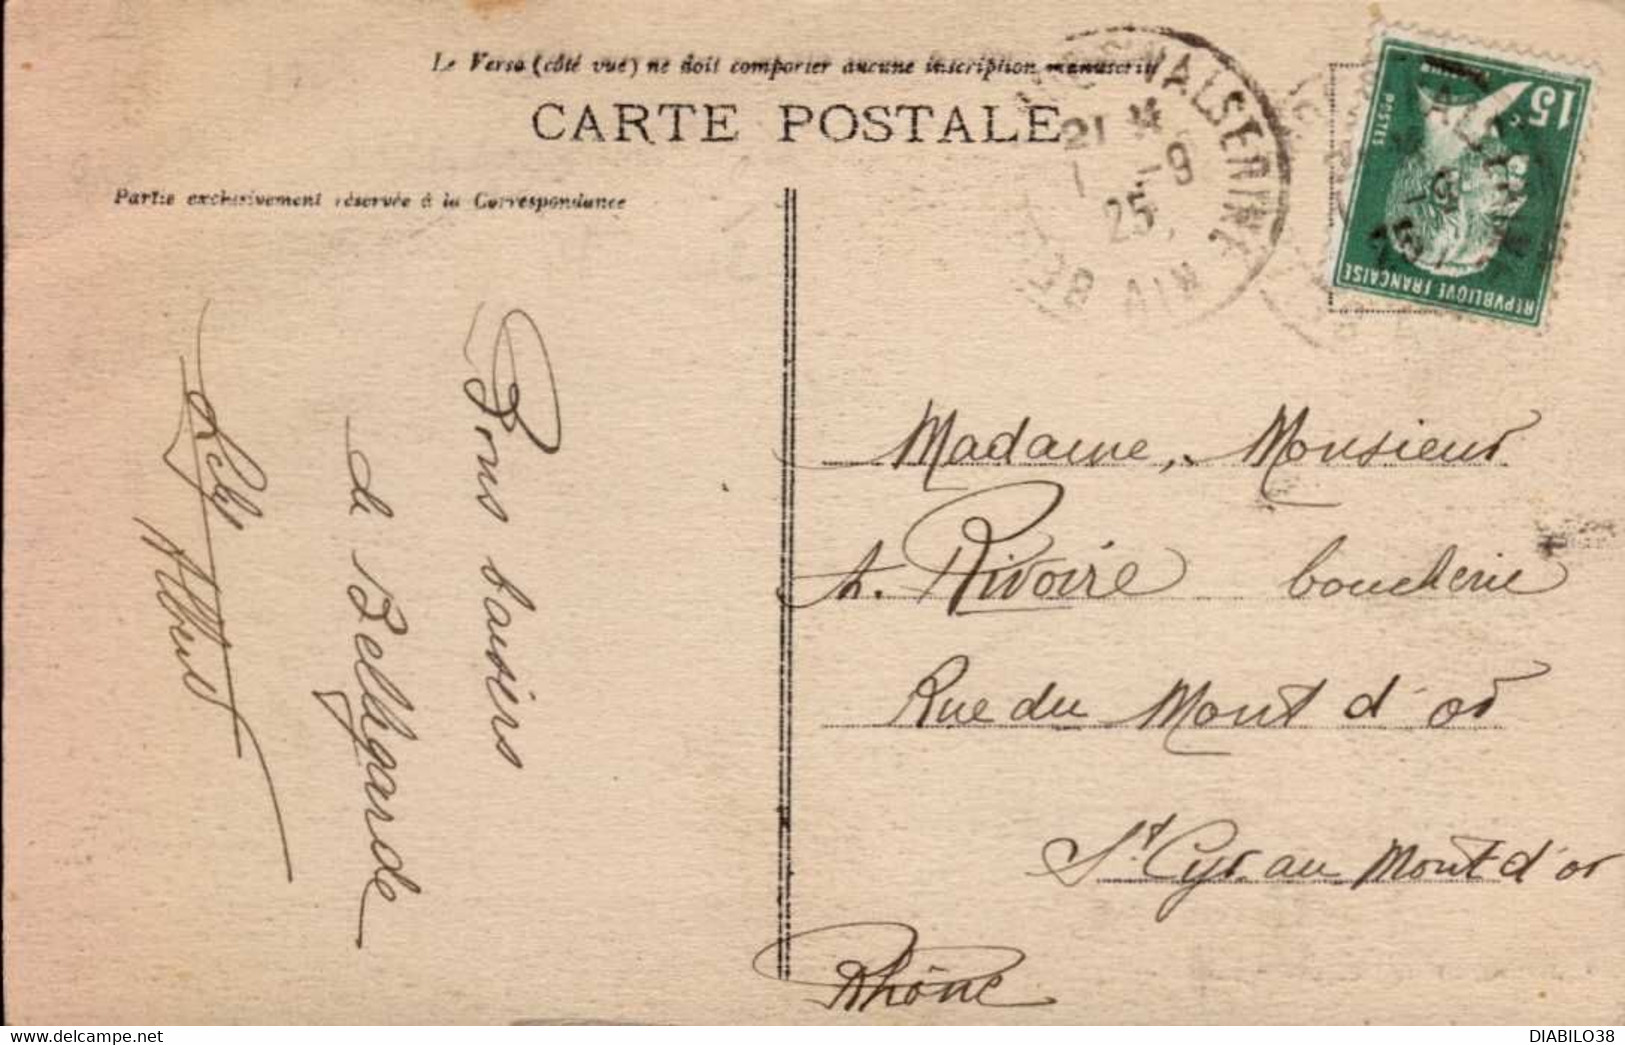 Le Verso (côté vue) ne doit comporter aucune inscription manuscrite
CARTE POSTALE
Partie exclusivement réservée à la Correspondance
VALSERINE
21 *
1 -9
25
AIN
15c
POSTES
REPVBLIQVE FRANÇAISE
Bons baisers
de Bellegarde
Albert
Madame, Monsieur
A. Rivoire boucherie
Rue du Mont d'or
St. Cyr au Mont d'or
Rhône
DIABILO38